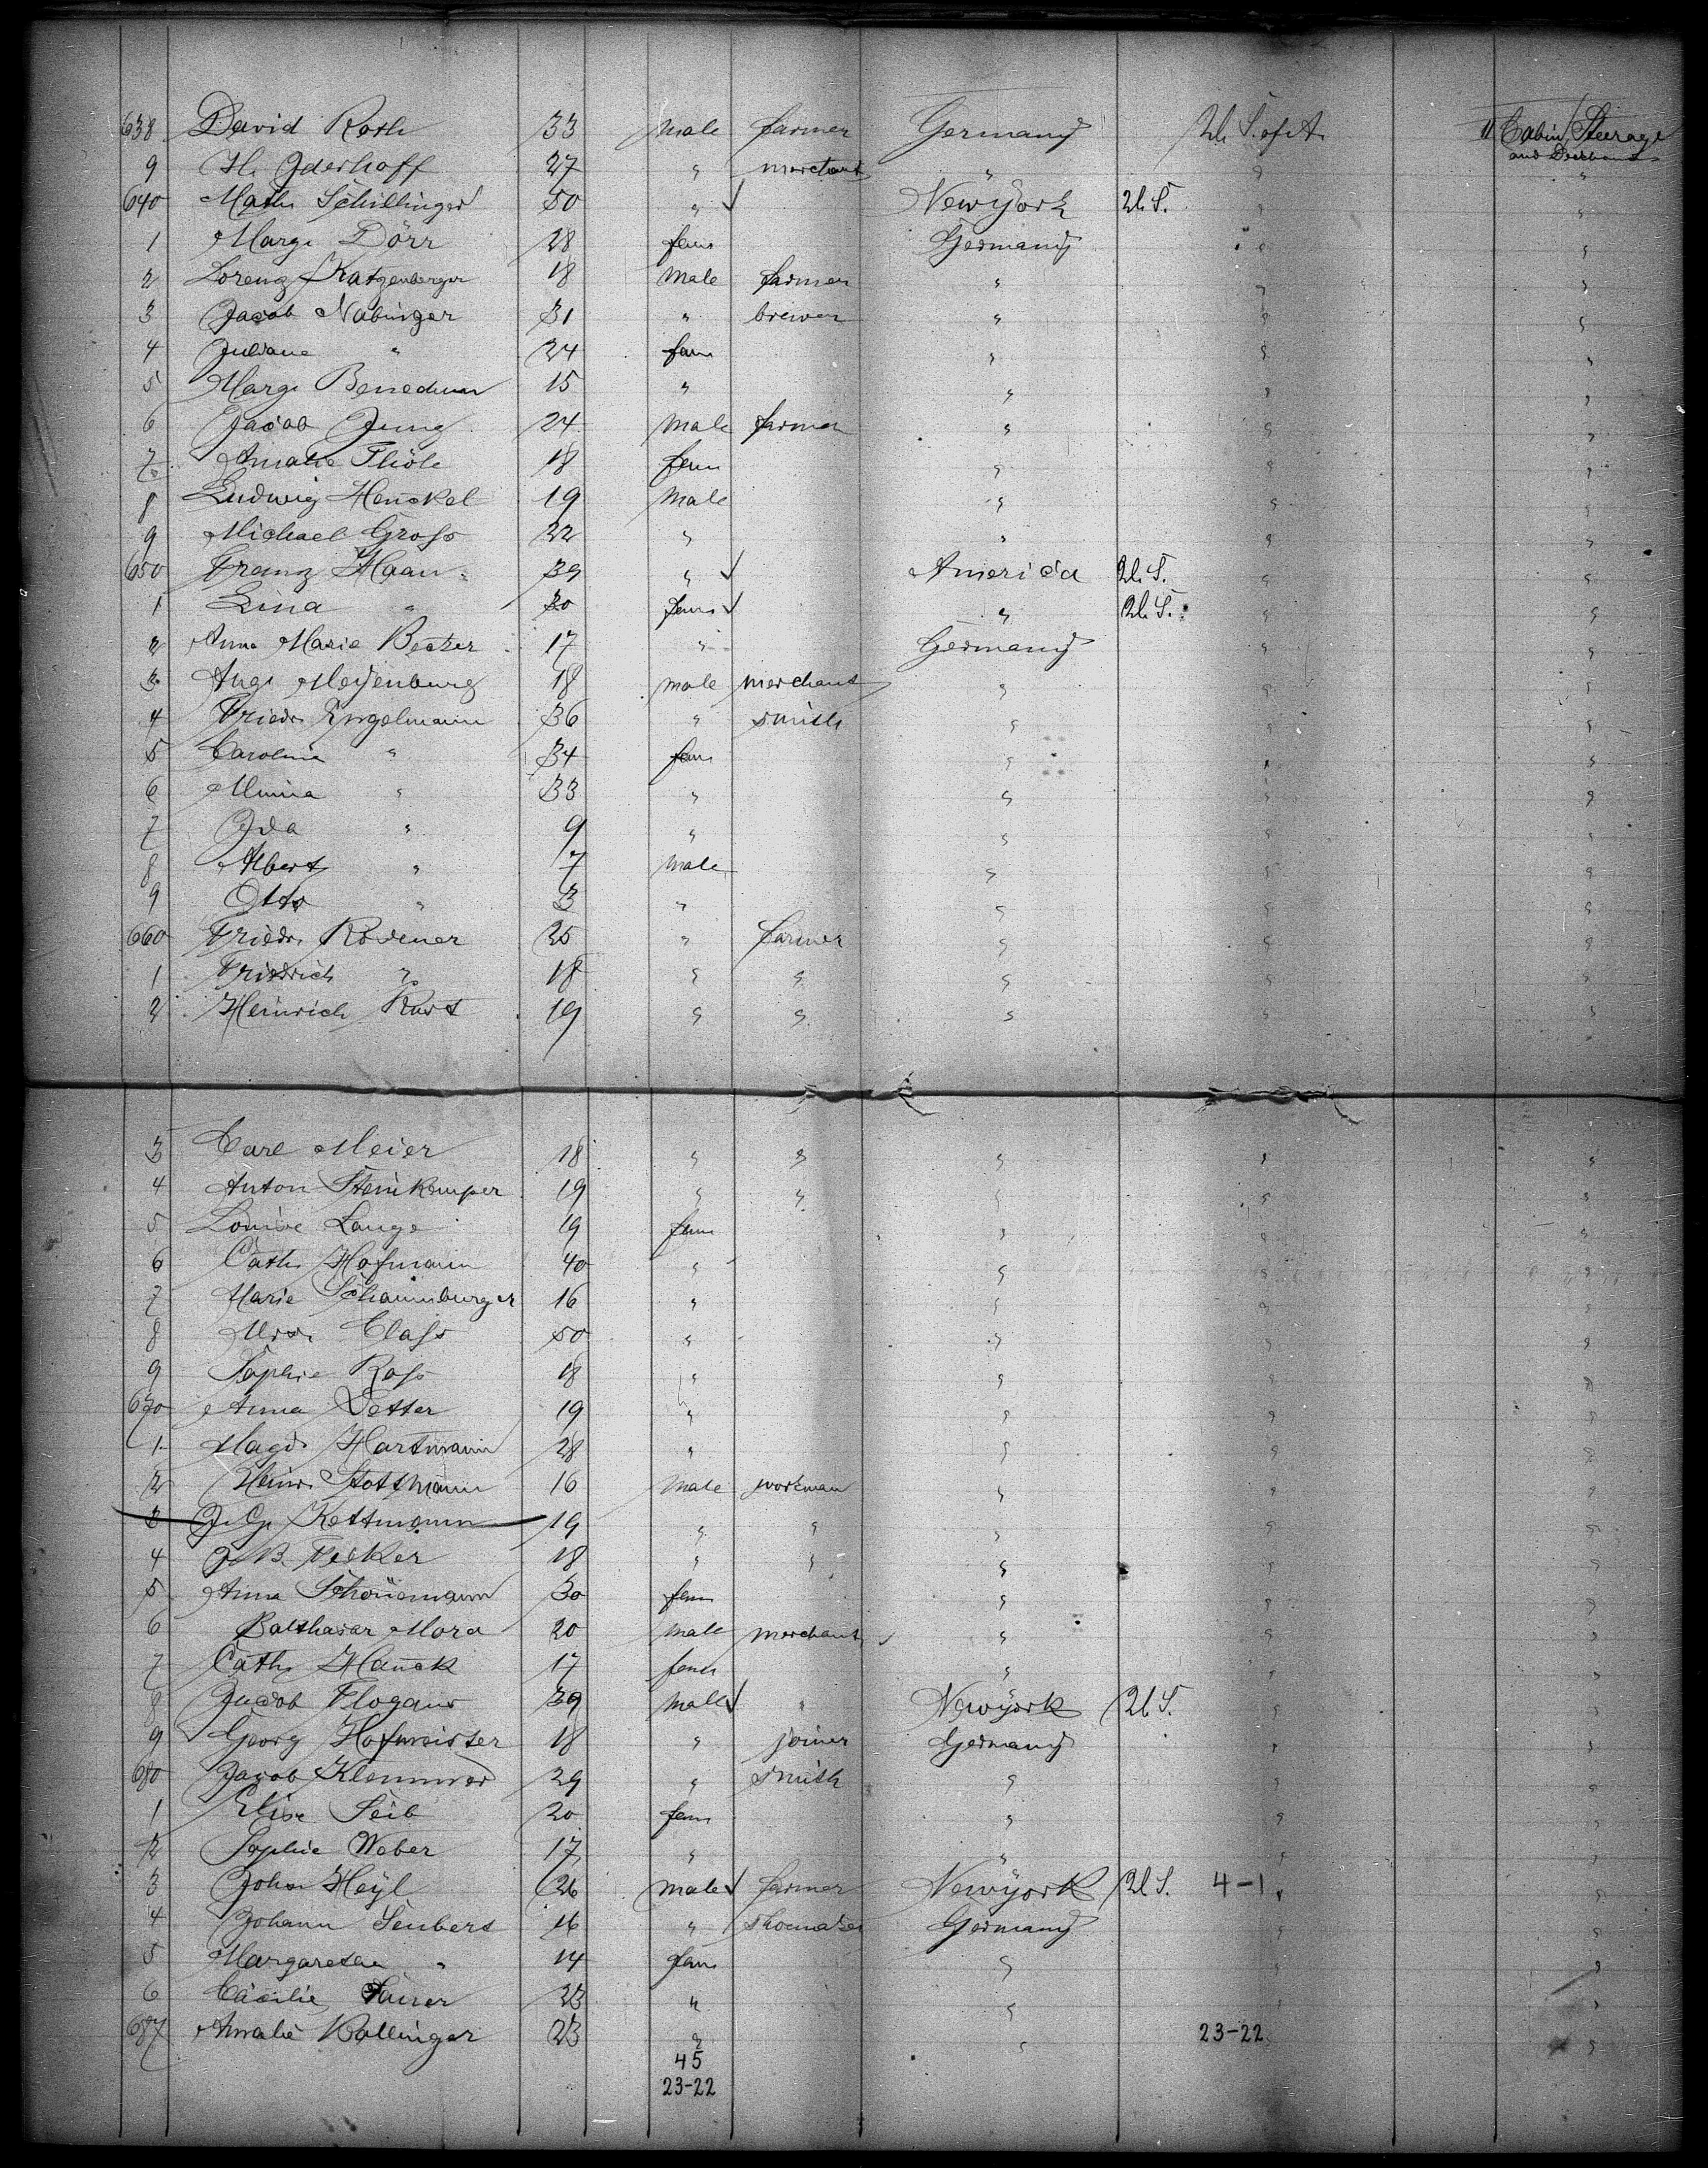 638 David Roth 33 male farmer Germany U. S. of A. Cabin/Steerage
9 H. Iderhoff 27 " merchant " " and "
640 Math. Schillinger 50 " ✓ Newyork U. S. " "
1 Marg. Dörr 28 fem Germany " "
2 Lorenz Katzenberger 18 male farmer " " "
3 Jacob Nabinger 31 " brewer " " "
4 Juliane " 24 fem " " "
5 Marg. 15 " " " "
6 Jacob Jung 24 male farmer " " "
7 Amalie Thöle 18 fem " " "
8 Ludwig Henckel 19 male " " "
9 Michael Gross 22 " " " "
650 Franz Haan 39 " ✓ America U. S. " "
1 Lina " 30 fem ✓ " U. S. " "
2 Anna Marie Becker 17 " Germany " "
3 Aug. Meyenburg 18 male merchant " " "
4 Friedr. Engelmann 36 " smith " " "
5 Caroline " 34 fem " " "
6 Minna " 33 " " " "
7 Ida " 9 " " " "
8 Albert " 7 male " " "
9 Otto " 3 " " " "
660 Friedr. Rodener 25 " farmer " " "
1 Friedrich " 18 " " " " "
2 Heinrich Kurt 19 " " " "
3 Carl Meier 18 " " " " "
4 Anton Steinkemper 19 " " " " "
5 Louise Lange 19 fem " " "
6 Cath. Hofmann 40 " " " "
7 Marie Schaumburger 16 " " " "
8 Class 50 " " " "
9 Sophie Ross 18 " " " "
670 Anna Vetter 19 " " " "
1 Magd. Hartmann 28 " " " "
2 Heinr. Stottmann 16 male workman " " "
3 J. G. Kettmann 19 " " " " "
4 J. B. Fecker 18 " " " " "
5 Anna Schönemann 30 fem " " "
6 Balthasar Mora 20 male merchant " " "
7 Cath. Hanck 17 fem " " "
8 Jacob Flogaus 39 male ✓ " Newyork U. S. " "
9 Georg Hofmeister 18 " joiner Germany " "
680 Jacob Klemmer 29 " smith " " "
1 Elise Seib 20 fem " " "
2 Sophie Weber 17 " " " "
3 John Heyl 26 male ✓ farmer Newyork U. S. 4-1 " "
4 Johann Seubert 16 " shoemaker Germany " "
5 Margarethe " 14 fem " " "
6 Cäcilie 23 " " "
687 Amalie Bollinger 23 " " 23-22 "
45
23-22